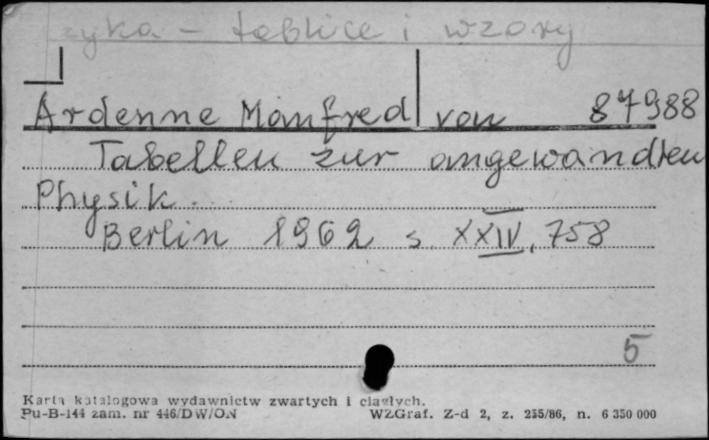 zyka - tablice i wzory
Ardenne Manfred von 87988
Tabellen zur angewandten
Physik.
Berlin 1962 s. XXIV, 758
5
Karta katalogowa wydawnictw zwartych i ciągłych.
Pu-B-144 zam. nr 446/DW/ON WZGraf. Z-d 2, z. 255/86, n. 6 350 000